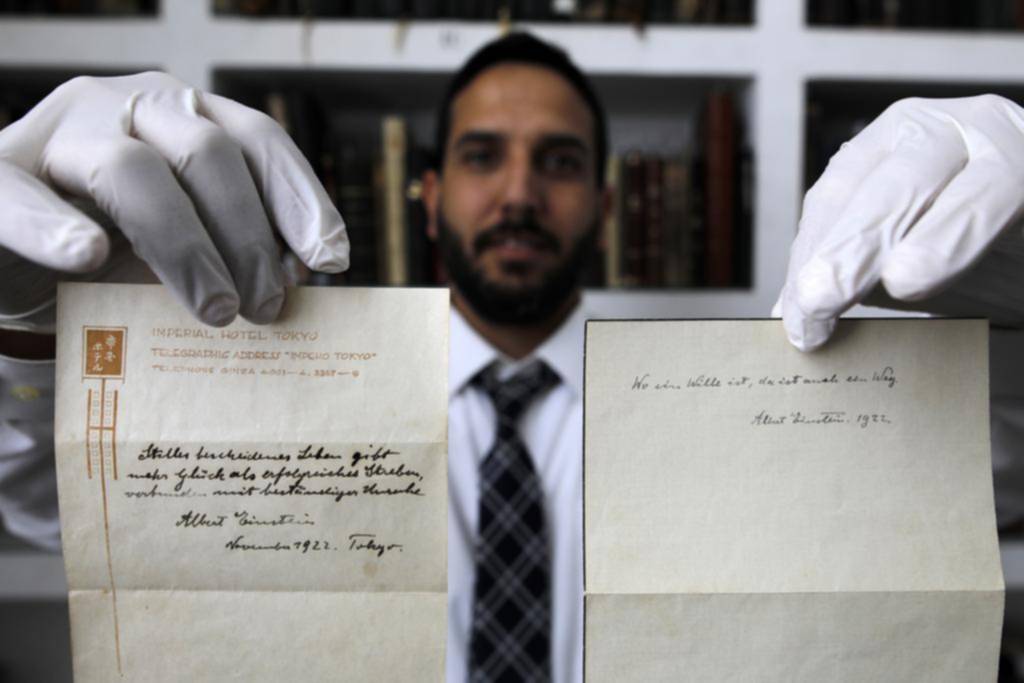 帝国
ホテル
IMPERIAL HOTEL TOKYO
TELEGRAPHIC ADDRESS "IMPEHO TOKYO"
TELEPHONE GINZA
Stilles bescheidenes Leben gibt
mehr Glück als erfolgreiches Streben,
verbunden mit beständiger Unruhe
Albert Einstein
November 1922. Tokyo.
Wo ein Wille ist, da ist auch ein Weg.
Albert Einstein. 1922.